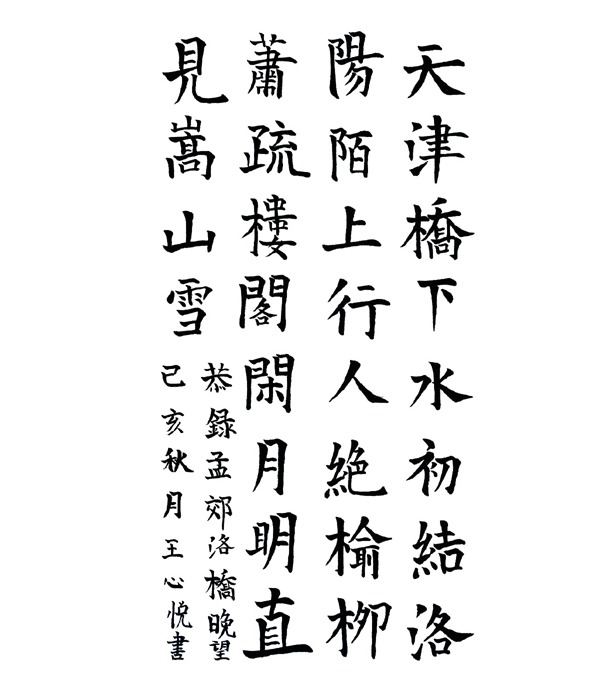 天津橋下水初結洛
陽陌上行人絕榆柳
蕭疏樓閣閑月明直
見嵩山雪
恭録孟郊洛橋晚望
己亥秋月王心悅書